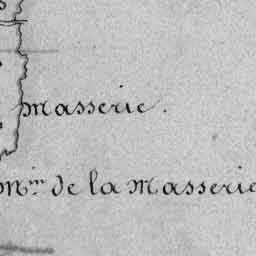 Masserie.
Min de la Masserie